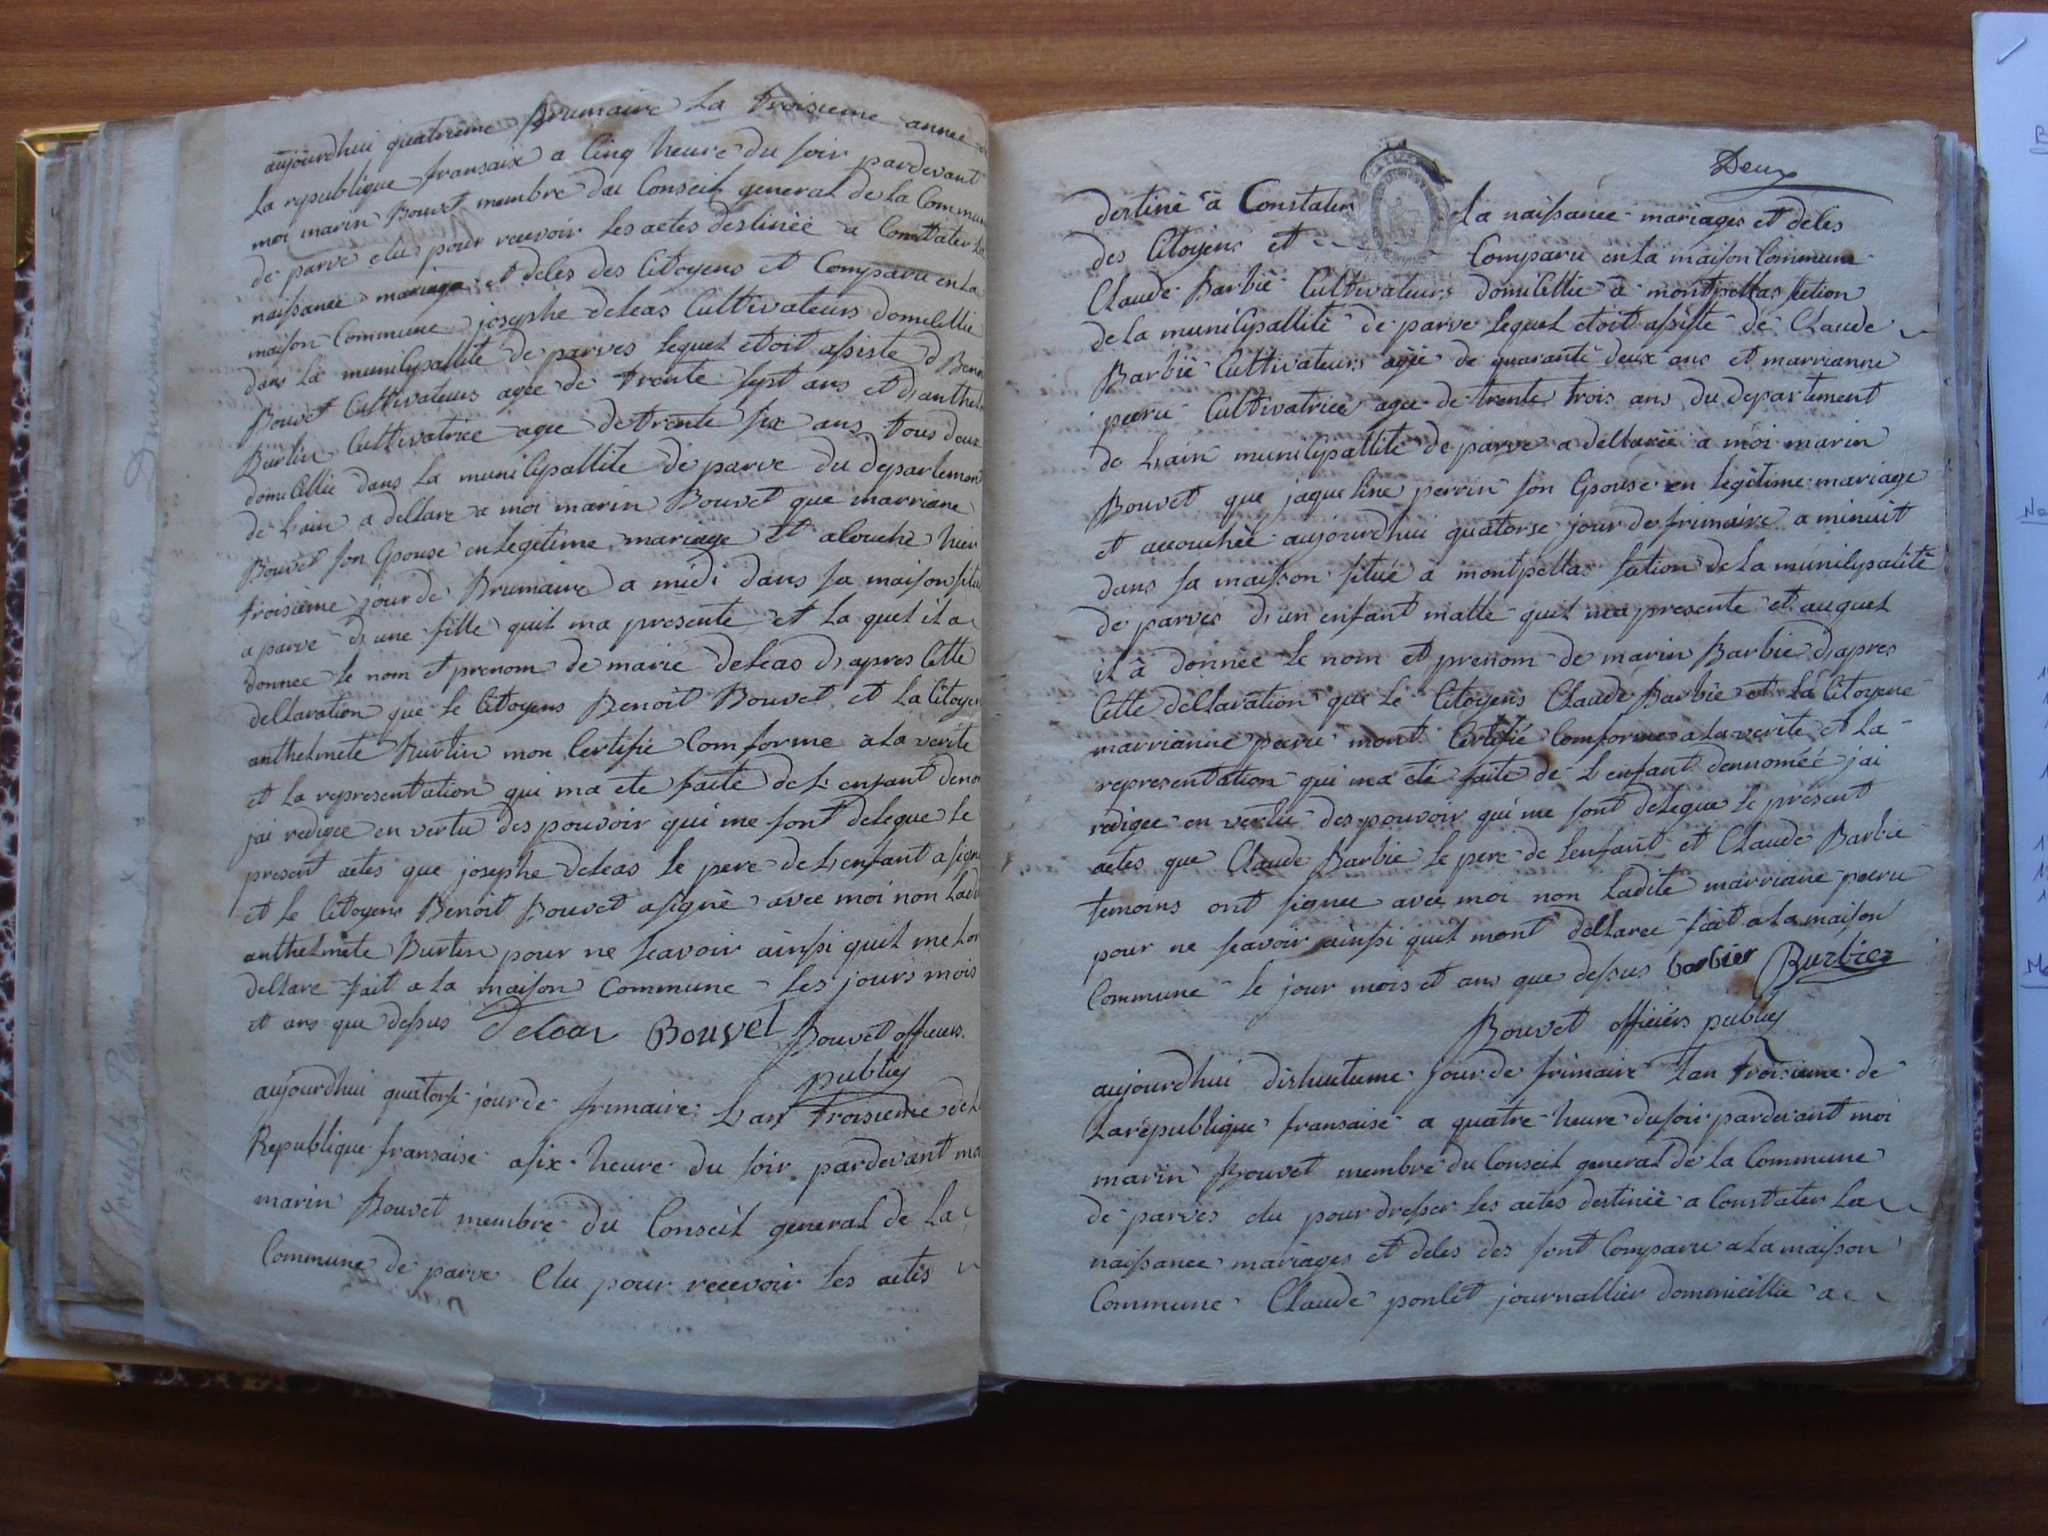 aujourdhui quatrieme Brumaire La troisieme annee
La republique fransaix a Cinq heure du soir pardevant
moi marin Bouvet membre du Conseil general de La Commun
de parve elus pour recevoir Les actes destinéé a Constater La
naissance mariage et deces des Citoyens et Comparu en La
maison Commune josephe deleas Cultivateurs domicillie
dans La municipallite de parves Lequel etoit assiste d Benoi
Bouvet Cultivateurs agée de trente sept ans et d, anthel
Burtin Cultivatrice agee de trente six ans tous deux
domicillie dans La municipallite de parve du departement
de L'ain a dellare a moi marin Bouvet que marriane
Bouvet son Epouse en Legitime mariage et acouché hier
troisieme jour de Brumaire a midi dans sa maison situe
a parve d, une fille quil ma presente et La quel il a
donnee Le nom et prenom de marie deleas d, apres Cette
dellaration que Le Citoyens Benoit Bouvet et La Citoyen
anthelmete Burtin mon Certifie Comforme a La verite
et La representation qui ma ete faite de L enfant deno
jai redigee en vertu des pouvoir qui me sont delegue Le
present actes que josephe deleas Le pere de L enfant a signe
et Le Citoyens Benoit Bouvet a signé avec moi non Ladi
anthelmete Burtin pour ne scavoir ainsi quil me Lon
dellare fait a La maison Commune Les jours mois
et ans que dessus Deleas Bouvet Bouvet officiers
publiq
aujourdhui quatorse jour de frimaire L an troisieme de La
Republique fransaise a six heure du soir pardevant moi
marin Bouvet membre du Conseil general de La
Commune de parve Elu pour recevoir Les actes
Deux
destiné à Constater La naissance mariages et deces
des Citoyens et Comparu en La maison Commune
Claude Barbié Cultivateurs domicillié à montpellas section
de La municipallité de parve Lequel etoit assisté de Claude
Barbié Cultivateurs agée de quarante deux ans et marrianne
perru Cultivatrice agee de trente trois ans du departement
de L'ain municipallité de parve a dellaréé a moi marin
Bouvet que jaqueline perrin son Epouse en Legitime mariage
et accouchéé aujourdhui quatorse jour de frimaire a minuit
dans sa maison situé a montpellas section de La municipalité
de parves d, un enfant malle quil ma presente et auquel
il à donnée Le nom et prenom de marin Barbie d, apres
Cette dellaration que Le Citoyens Claude Barbie et La Citoyene
marrianne perru mont Certifié Comforme a La verite et La
representation qui ma eté faite de L enfant dennomée j'ai
redigee en vertu des pouvoir qui me sont delegue Le présent
actes que Claude Barbie Le pere de Lenfant et Claude Barbie
temoins ont signee avec moi non Ladite marriane perru
pour ne scavoir ainsi quil mont dellaree fait a La maison
Commune Le jour mois et ans que dessus barbier Barbier
Bouvet officiers publiq
aujourdhui dishuitieme jour de frimaire Lan troisieme de
La republique fransaise a quatre heure du soir pardevant moi
marin Bouvet membre du Conseil general de La Commune
de parves elu pour dresser Les actes destinée a Constater La
naissance mariages et deces des sont Comparu a La maison
Commune Claude ponlet journallier dommicillie a